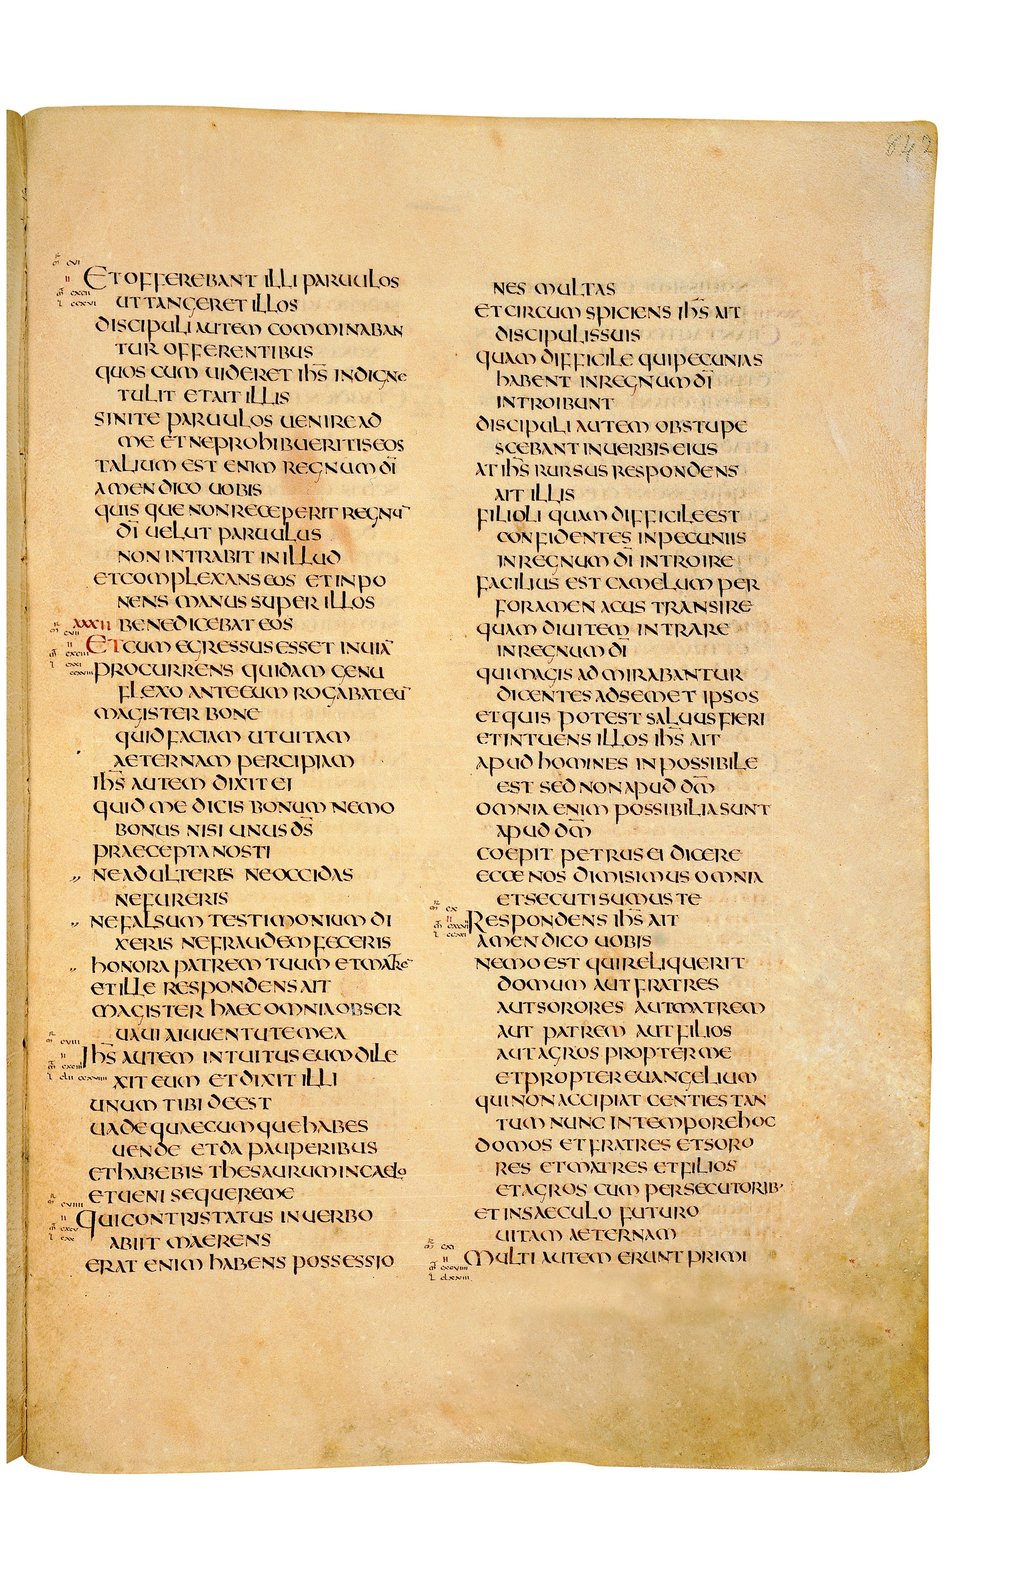 842
ET OFFEREBANT ILLI PARUULOS
UT TANGERET ILLOS
DISCIPULI AUTEM COMMINABAN
TUR OFFERENTIBUS
QUOS CUM UIDERET IH̅S INDIGNE
TULIT ET AIT ILLIS
SINITE PARUULOS UENIRE AD
ME ET NE PROHIBUERITIS EOS
TALIUM EST ENIM REGNUM DI̅
AMEN DICO UOBIS
QUISQUE NON RECEPERIT REGNU̅
DI̅ UELUT PARUULUS
NON INTRABIT IN ILLUD
ET COMPLEXANS EOS ET INPO
NENS MANUS SUPER ILLOS
XXXII BENEDICEBAT EOS
ET CUM EGRESSUS ESSET IN UIA̅
PROCURRENS QUIDAM GENU
FLEXO ANTE EUM ROGABAT EU̅
MAGISTER BONE
QUID FACIAM UT UITAM
AETERNAM PERCIPIAM
IH̅S AUTEM DIXIT EI
QUID ME DICIS BONUM NEMO
BONUS NISI UNUS DS̅
PRAECEPTA NOSTI
NE ADULTERIS NE OCCIDAS
NE FURERIS
NE FALSUM TESTIMONIUM DI
XERIS NE FRAUDEM FECERIS
HONORA PATREM TUUM ET MATRE̅
ET ILLE RESPONDENS AIT
MAGISTER HAEC OMNIA OBSER
UAUI A IUUENTUTE MEA
IH̅S AUTEM INTUITUS EUM DILE
XIT EUM ET DIXIT ILLI
UNUM TIBI DEEST
UADE QUAECUMQUE HABES
UENDE ET DA PAUPERIBUS
ET HABEBIS THESAURUM IN CAELO
ET UENI SEQUERE ME
QUI CONTRISTATUS IN UERBO
ABIIT MAERENS
ERAT ENIM HABENS POSSESSIO
NES MULTAS
ET CIRCUMSPICIENS IH̅S AIT
DISCIPULIS SUIS
QUAM DIFFICILE QUI PECUNIAS
HABENT IN REGNUM DI̅
INTROIBUNT
DISCIPULI AUTEM OBSTUPE
SCEBANT IN UERBIS EIUS
AT IH̅S RURSUS RESPONDENS
AIT ILLIS
FILIOLI QUAM DIFFICILE EST
CONFIDENTES IN PECUNIIS
IN REGNUM DI̅ INTROIRE
FACILIUS EST CAMELUM PER
FORAMEN ACUS TRANSIRE
QUAM DIUITEM INTRARE
IN REGNUM DI̅
QUI MAGIS ADMIRABANTUR
DICENTES AD SEMET IPSOS
ET QUIS POTEST SALUUS FIERI
ET INTUENS ILLOS IH̅S AIT
APUD HOMINES INPOSSIBILE
EST SED NON APUD DM̅
OMNIA ENIM POSSIBILIA SUNT
APUD DM̅
COEPIT PETRUS EI DICERE
ECCE NOS DIMISIMUS OMNIA
ET SECUTI SUMUS TE
RESPONDENS IH̅S AIT
AMEN DICO UOBIS
NEMO EST QUI RELIQUERIT
DOMUM AUT FRATRES
AUT SORORES AUT MATREM
AUT PATREM AUT FILIOS
AUT AGROS PROPTER ME
ET PROPTER EUANGELIUM
QUI NON ACCIPIAT CENTIES TAN
TUM NUNC IN TEMPORE HOC
DOMOS ET FRATRES ET SORO
RES ET MATRES ET FILIOS
ET AGROS CUM PERSECUTORIB·
ET IN SAECULO FUTURO
UITAM AETERNAM
MULTI AUTEM ERUNT PRIMI